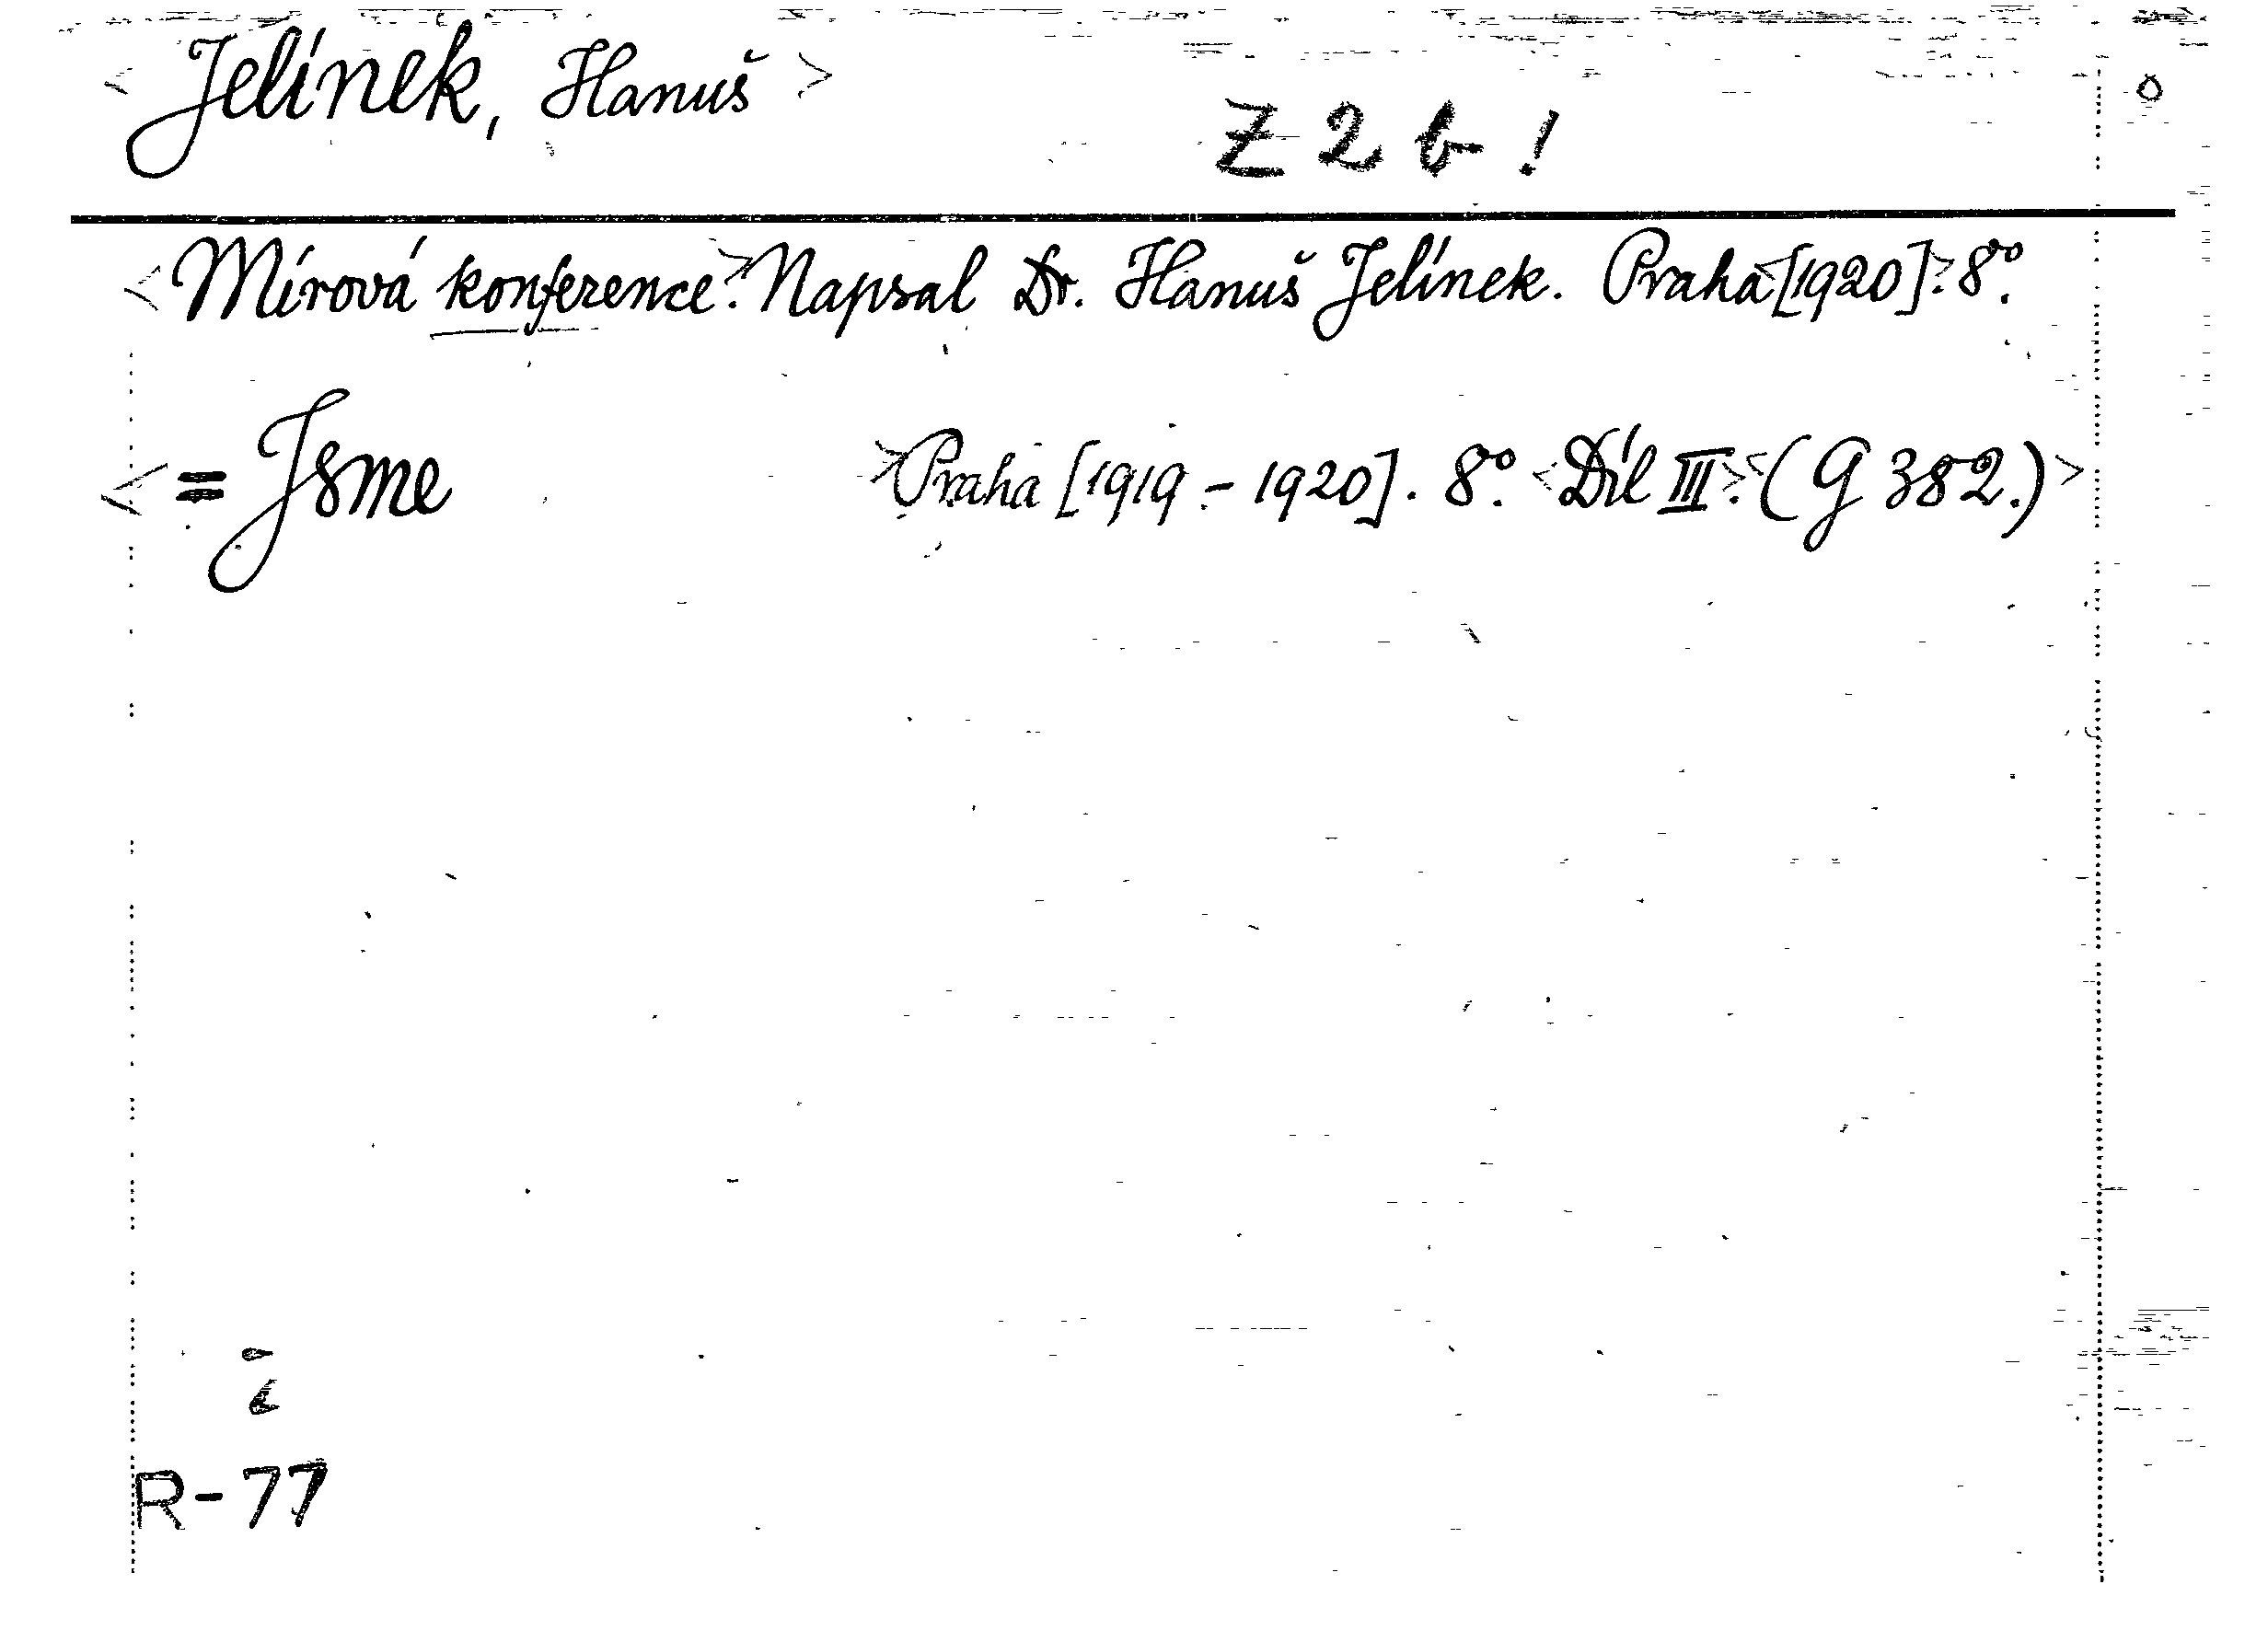 < Jelínek, Hanuš >
Z 2 b !
< Mírová konference.> Napsal Dr. Hanuš Jelínek. Praha <[1920].> 8°.
< = Jsme > Praha [1919 - 1920]. 8°. < Díl III.> < (G 382.) >
R-77